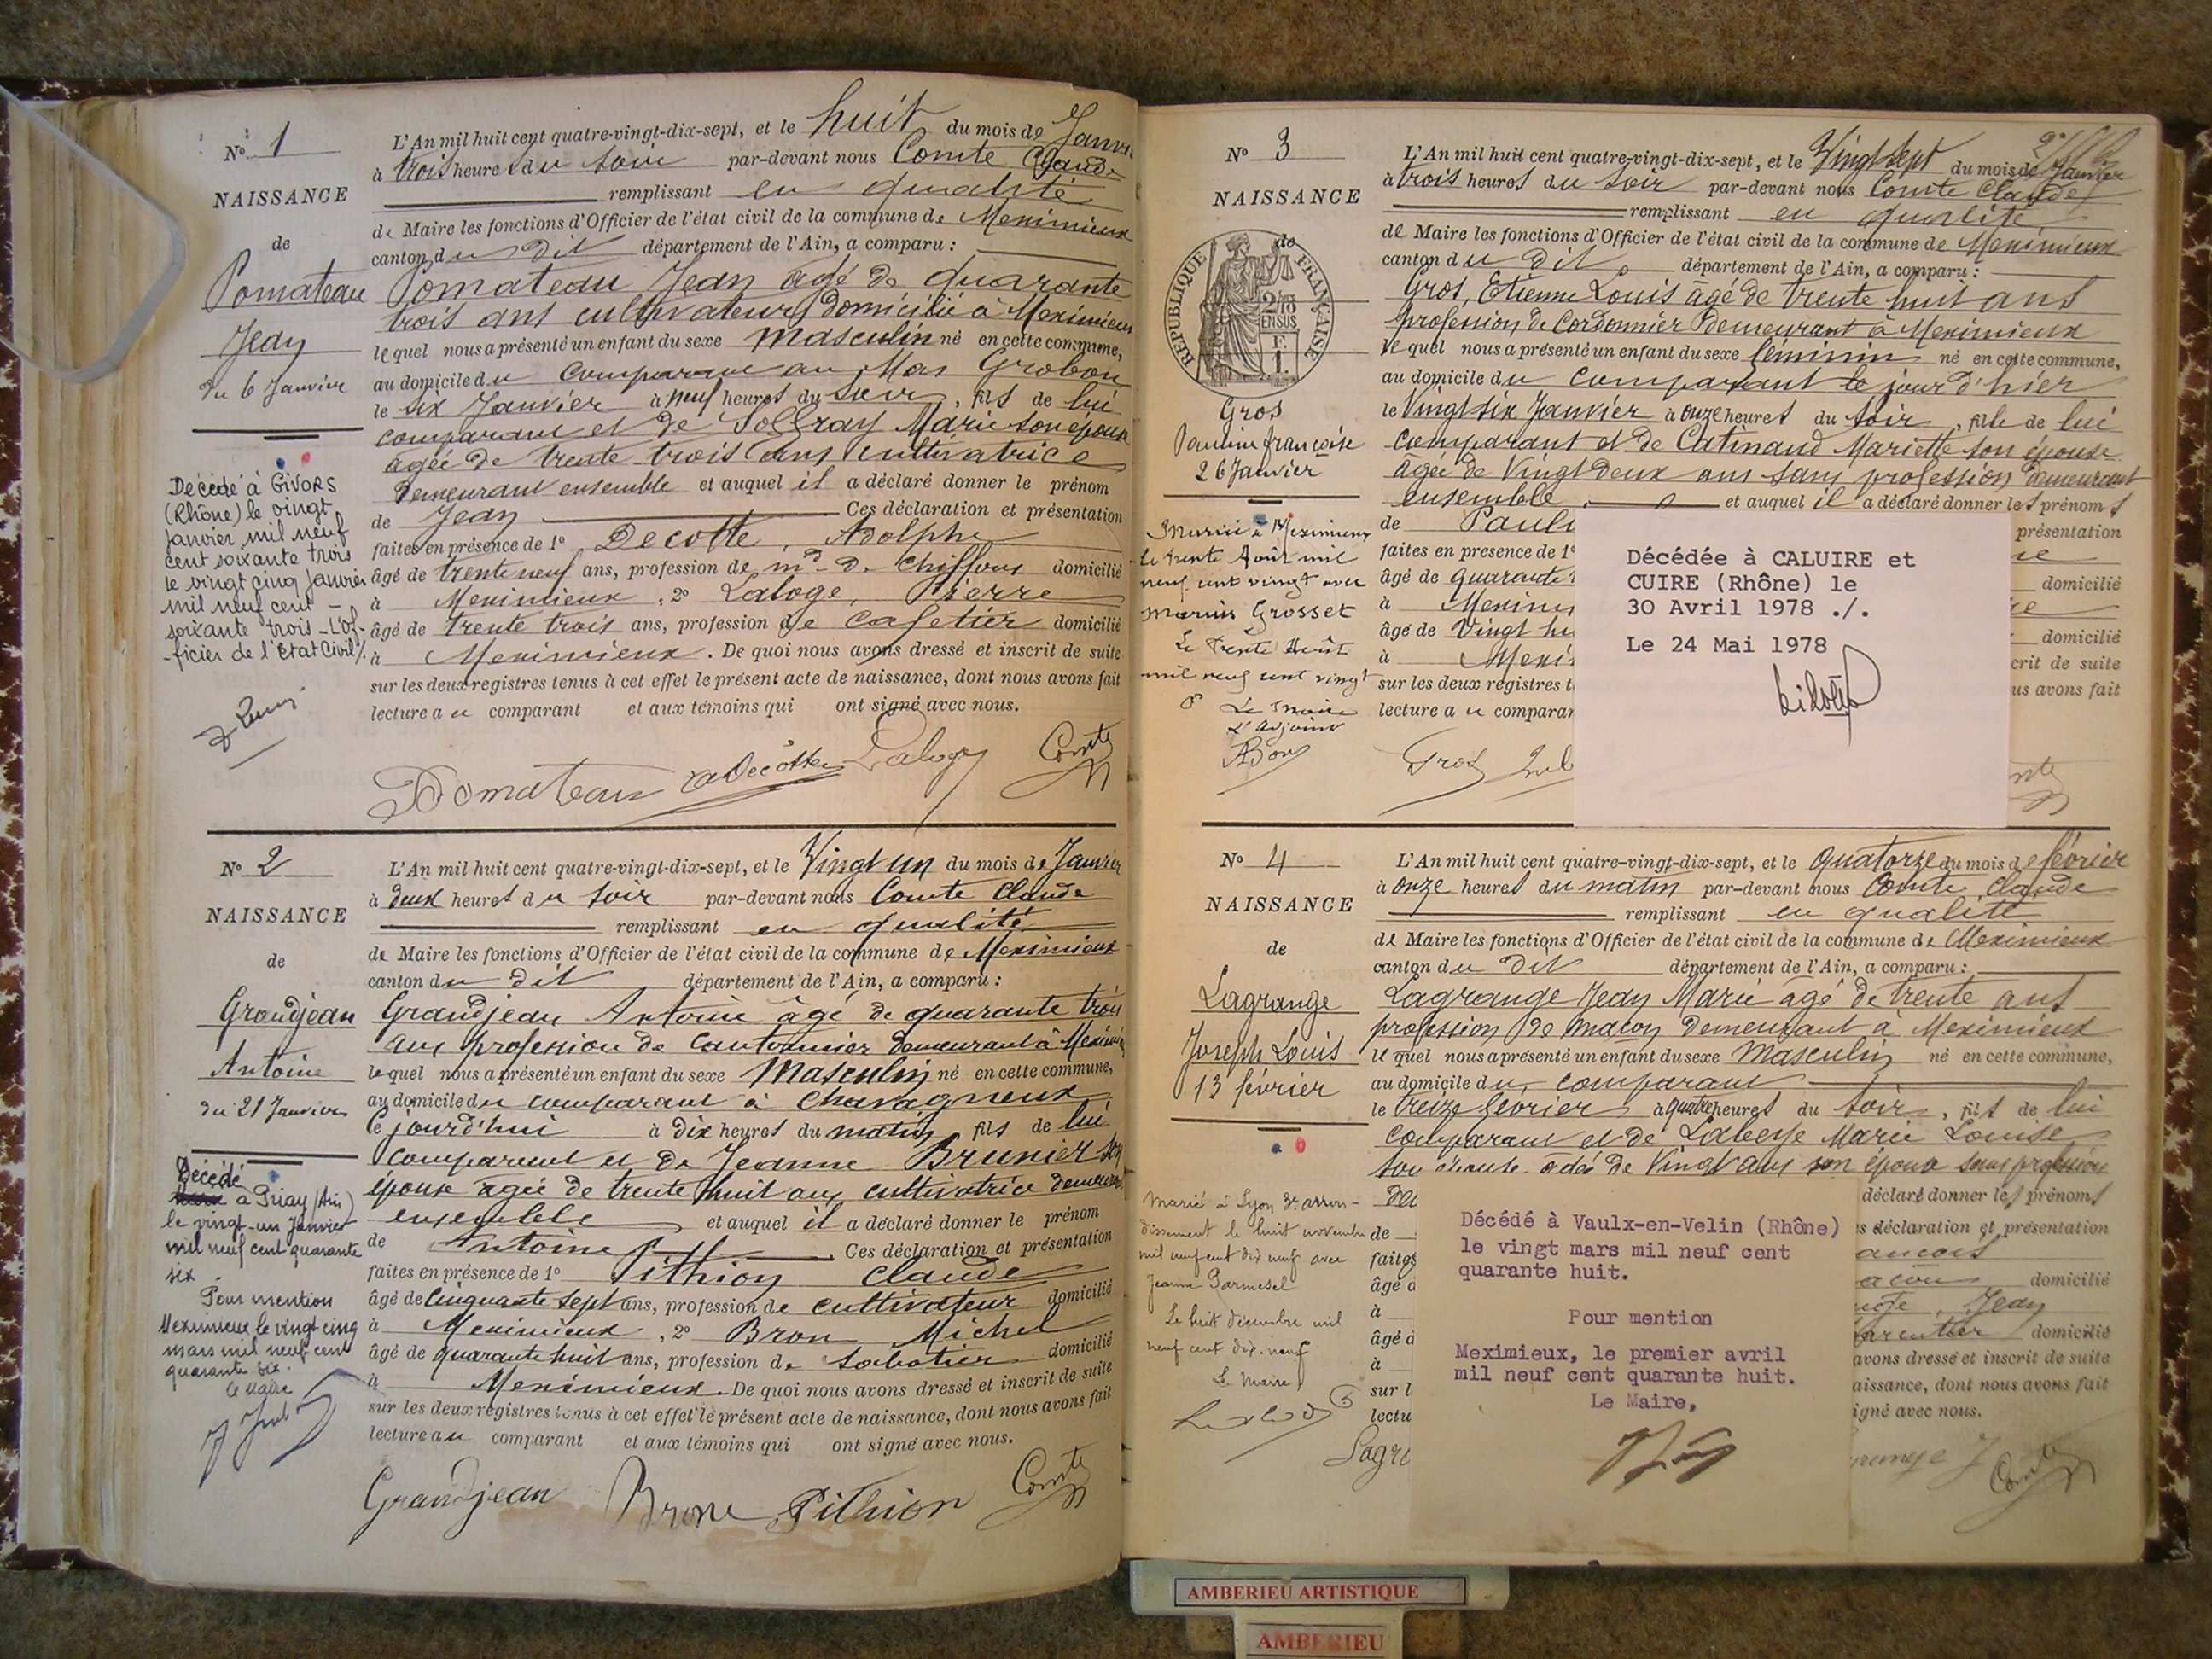 N° 1
NAISSANCE
de
Pomateau
Jean
du 6 Janvier
Décédé à GIVORS
(Rhône) le vingt
janvier mil neuf
cent soixante trois
le vingt cinq janvier
mil neuf cent -
soixante trois - L'Of-
-ficier de l'Etat Civil ./.
L'An mil huit cent quatre-vingt-dix-sept, et le huit du mois de Janvi
à trois heures du soir par-devant nous Comte Claude
remplissant en qualité
de Maire les fonctions d'Officier de l'état civil de la commune de Meximieux
canton du dit département de l'Ain, a comparu :
Pomateau Jean âgé de quarante
trois ans cultivateur domicilié à Meximieux
lequel nous a présenté un enfant du sexe masculin né en cette commune,
au domicile du comparant au Mas Grobon
le six Janvier à neuf heures du soir, fils de lui
comparant et de Marie son épouse
âgée de trente trois ans cultivatrice
demeurant ensemble et auquel il a déclaré donner le prénom
de Jean Ces déclaration et présentation
faites en présence de 1° Decotte, Adolphe
âgé de trente neuf ans, profession de md de Chiffons domicilié
à Meximieux, 2° Laloge, Pierre
âgé de trente trois ans, profession de cafetier domicilié
à Meximieux. De quoi nous avons dressé et inscrit de suite
sur les deux registres tenus à cet effet le présent acte de naissance, dont nous avons fait
lecture au comparant et aux témoins qui ont signé avec nous.
Pomateau aDecotte Laloge Comte
N° 2
NAISSANCE
de
Grandjean
Antoine
du 21 Janvier
Décédé
à Priay (Ain)
le vingt-un Janvier
mil neuf cent quarante
six
Pour mention
Meximieux le vingt cinq
mars mil neuf cent
quarante six.
le Maire
L'An mil huit cent quatre-vingt-dix-sept, et le Vingt un du mois de Janvier
à deux heures du soir par-devant nous Comte Claude
remplissant en qualité
de Maire les fonctions d'Officier de l'état civil de la commune de Meximieux
canton du dit département de l'Ain, a comparu :
Grandjean Antoine âgé de quarante trois
ans profession de cantonnier demeurant à Meximieux
lequel nous a présenté un enfant du sexe Masculin né en cette commune,
au domicile du comparant à Chavagneux
le jourd'hui à dix heures du matin, fils de lui
comparant et de Jeanne Brunier son
épouse âgée de trente huit ans cultivatrice demeurant
ensemble et auquel il a déclaré donner le prénom
de Antoine Ces déclaration et présentation
faites en présence de 1° Pithion Claude
âgé de cinquante sept ans, profession de cultivateur domicilié
à Meximieux, 2° Bron Michel
âgé de quarante huit ans, profession de sabotier domicilié
à Meximieux. De quoi nous avons dressé et inscrit de suite
sur les deux registres tenus à cet effet le présent acte de naissance, dont nous avons fait
lecture au comparant et aux témoins qui ont signé avec nous.
Grandjean Brone Pithion Comte
N° 3
NAISSANCE
de
RÉPUBLIQUE FRANÇAISE
2/10
EN SUS
F.
1.
Gros
Pauline françoise
26 Janvier
Marié à Meximieux
le trente Août mil
neuf cent vingt avec
Marius Grosset
Le Trente Août
mil neuf cent vingt
Le Maire
L'Adjoint
L'An mil huit cent quatre-vingt-dix-sept, et le Vingt sept du mois de Janvier
à trois heures du soir par-devant nous Comte Claude
remplissant en qualité
de Maire les fonctions d'Officier de l'état civil de la commune de Meximieux
canton du dit département de l'Ain, a comparu :
Gros, Etienne Louis âgé de trente huit ans
profession de Cordonnier demeurant à Meximieux
lequel nous a présenté un enfant du sexe féminin né en cette commune,
au domicile du comparant le jour d'hier
le Vingt six Janvier à onze heures du soir, fille de lui
comparant et de Catinaud Mariette son épouse
âgée de Vingt deux ans sans profession demeurant
ensemble et auquel il a déclaré donner les prénoms
de Pauli présentation
faites en présence de 1°
âgé de quarante domicilié
à Mexim
âgé de Vingt hu domicilié
à Mexi crit de suite
sur les deux registres t us avons fait
lecture au comparan
Gros
Décédée à CALUIRE et
CUIRE (Rhône) le
30 Avril 1978 ./.
Le 24 Mai 1978
N° 4
NAISSANCE
de
Lagrange
Joseph Louis
13 février
Marié à Lyon 3e arron-
dissement le huit novembre
mil neuf cent dix neuf avec
Jeanne Parmesel
Le huit décembre mil
neuf cent dix-neuf
Le Maire
L'An mil huit cent quatre-vingt-dix-sept, et le quatorze du mois de février
à onze heures du matin par-devant nous Comte Claude
remplissant en qualité
de Maire les fonctions d'Officier de l'état civil de la commune de Meximieux
canton du dit département de l'Ain, a comparu :
Lagrange Jean Marie âgé de trente ans
profession de maçon demeurant à Meximieux
lequel nous a présenté un enfant du sexe Masculin né en cette commune,
au domicile du comparant
le treize février à quatre heures du soir, fils de lui
comparant et de Marie Louise
son épouse âgée de Vingt ans son épouse sans profession
déclaré donner les prénoms
de s déclaration et présentation
faites ancois
âgé d açon domicilié
à Jean
âgé d arentier domicilié
à avons dressé et inscrit de suite
sur l aissance, dont nous avons fait
lectu igné avec nous.
Lagr range J Comte
Décédé à Vaulx-en-Velin (Rhône)
le vingt mars mil neuf cent
quarante huit.
Pour mention
Meximieux, le premier avril
mil neuf cent quarante huit.
Le Maire,
AMBERIEU ARTISTIQUE
AMBERIEU